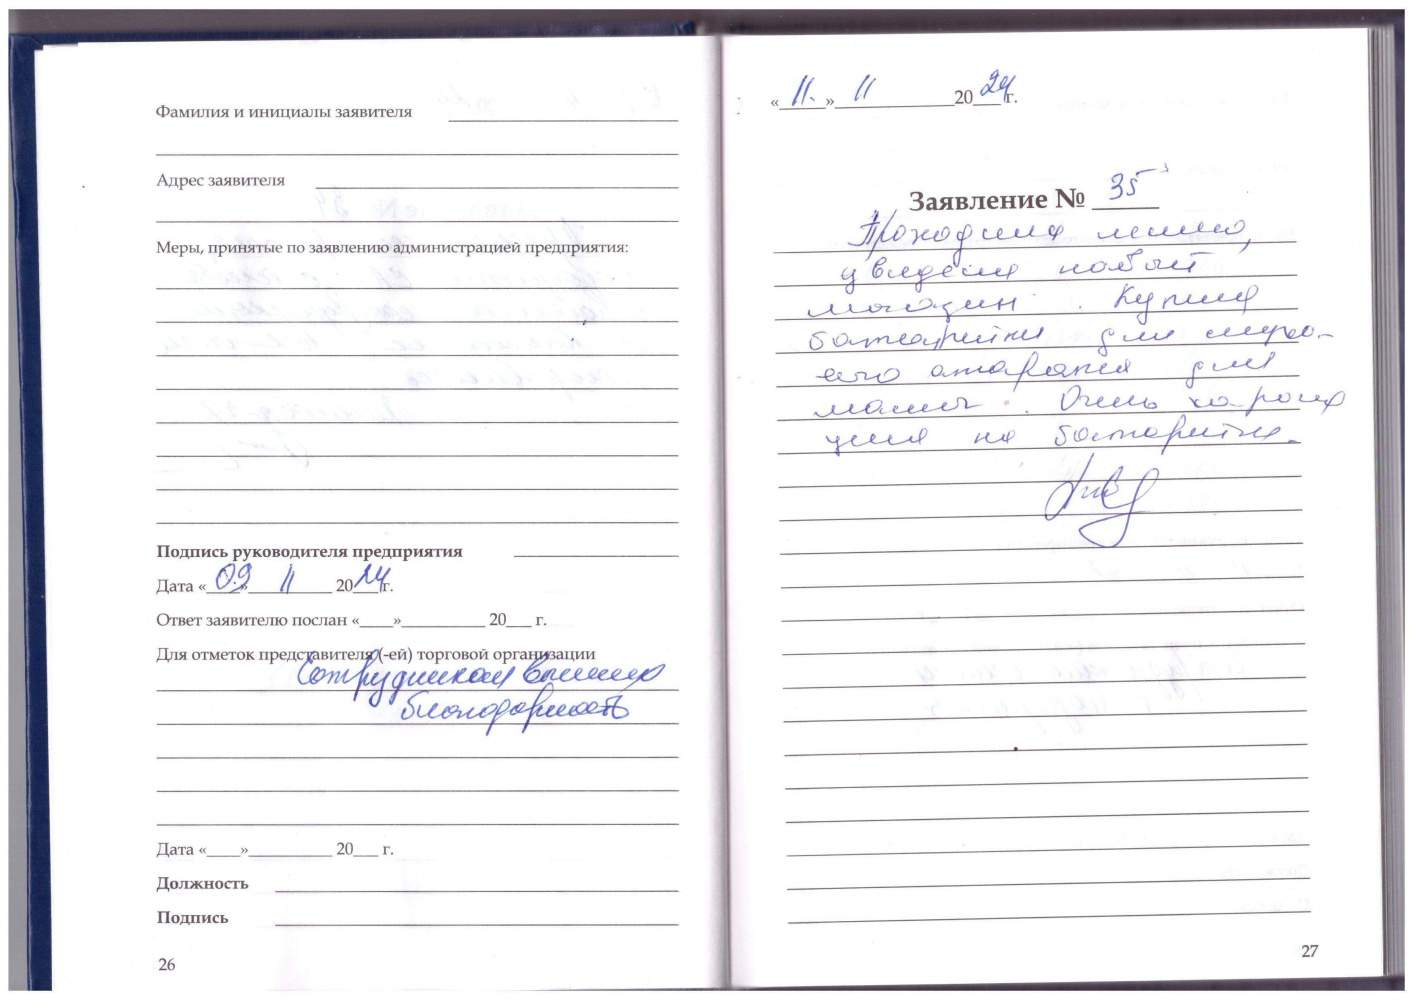 Фамилия и инициалы заявителя
Адрес заявителя
Меры, принятые по заявлению администрацией предприятия:
Подпись руководителя предприятия
Дата «09» 11 2024 г.
Ответ заявителю послан «____»__________ 20___ г.
Для отметок представителя (-ей) торговой организации
Сотрудникам вынести
благодарность
Дата «____»__________ 20___ г.
Должность
Подпись
26
«11.» 11 2024 г.
Заявление № 35
Проходила мимо,
увидела новый
магазин. Купила
батарейки для слухо-
вого аппарата для
мамы. Очень хорошая
цена на батарейки.
27